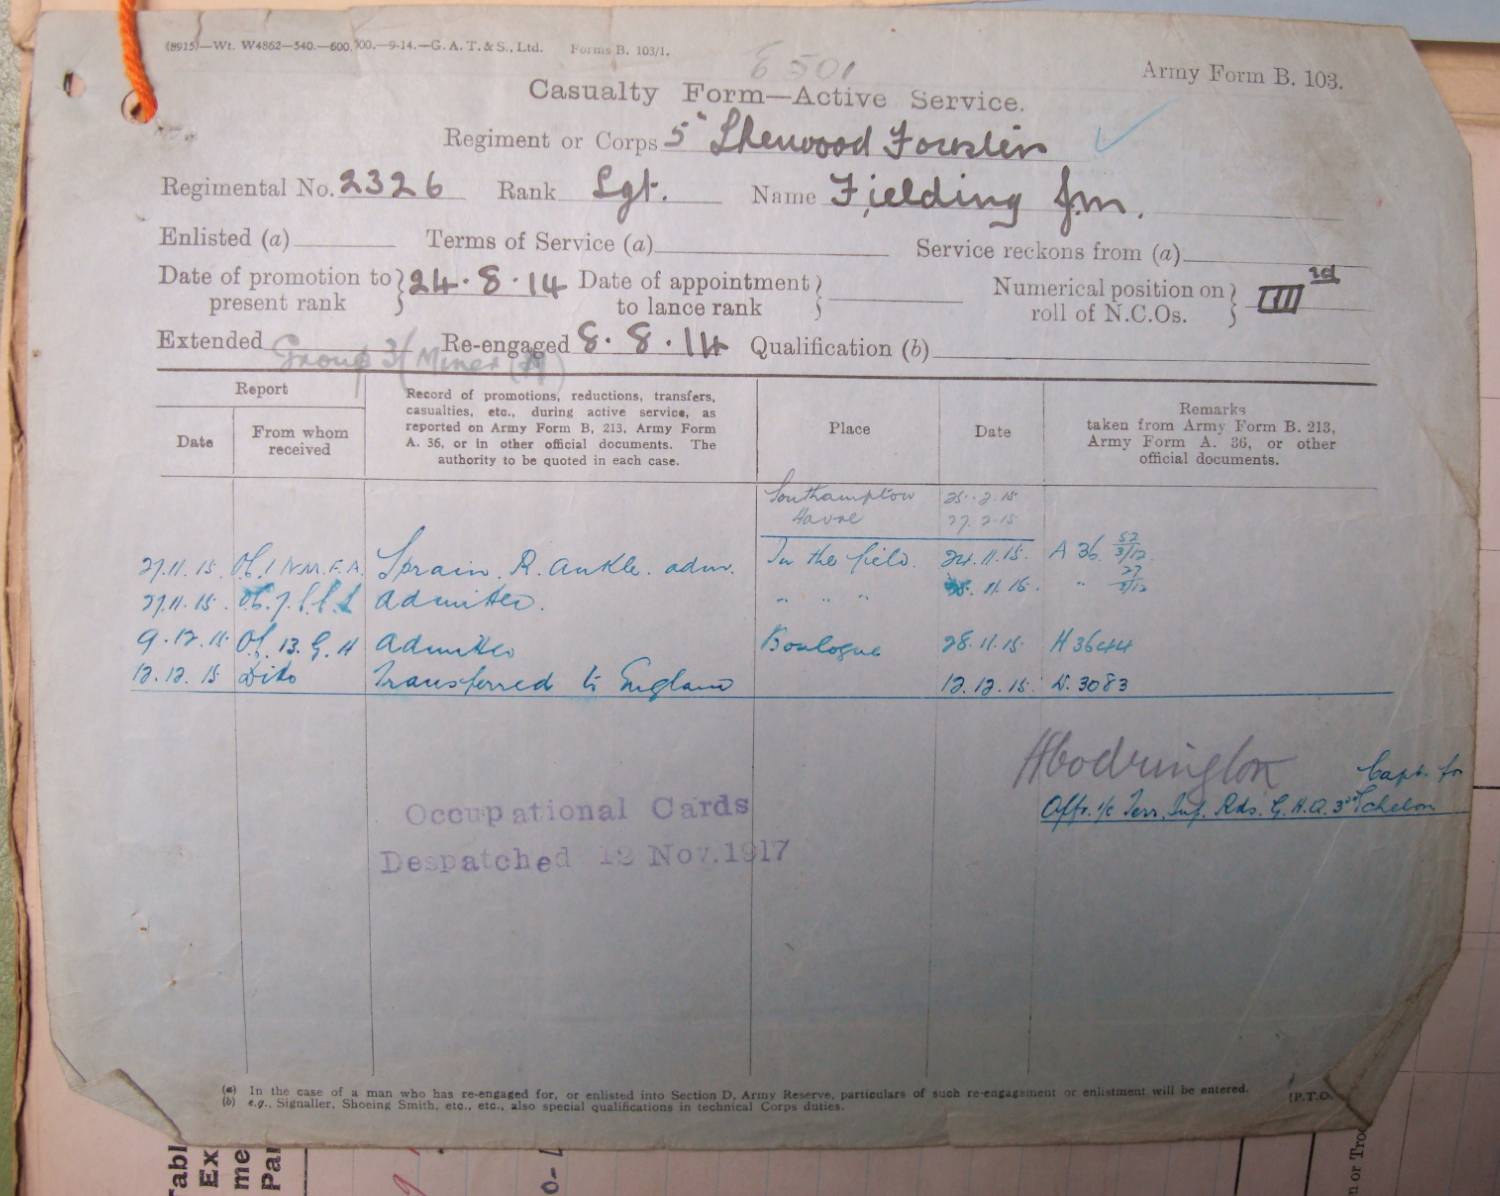 (8915)—Wt. W4862—540.—600,000.—9-14.—G. A. T. & S., Ltd. Forms B. 103/1.
6501
Army Form B. 103.
Casualty Form—Active Service.
Regiment or Corps 5th Sherwood Foresters
Regimental No. 2326 Rank Sgt. Name Fielding J.M.
Enlisted (a) Terms of Service (a) Service reckons from (a)
Date of promotion to present rank } 24.8.14 Date of appointment to lance rank } Numerical position on roll of N.C.Os. } III rd
Extended Re-engaged 8.8.14 Qualification (b)
Group 3 (Miner (A)
Report
Date
From whom received
Record of promotions, reductions, transfers, casualties, etc., during active service, as reported on Army Form B, 213, Army Form A. 36, or in other official documents. The authority to be quoted in each case.
Place
Date
Remarks taken from Army Form B. 213, Army Form A. 36, or other official documents.
Southampton 25.2.15
Havre 27.2.15
27.11.15. Sprain. R. ankle. adm. In the field. 24.11.15. A 36
27.11.15. admitted. " " " .11.15. "
9.12.15 Of. 13. G. H admitted Boulogne 28.11.15 H 3644
12.12.15 Ditto Transferred to England 12.12.15. N. 3083
HCodrington Capt. for
Offr. i/c Terr. Inf. Rds. G.H.Q. 3rd Echelon
Occupational Cards
Despatched 12 Nov. 1917
(a) In the case of a man who has re-engaged for, or enlisted into Section D, Army Reserve, particulars of such re-engagement or enlistment will be entered.
(b) e.g., Signaller, Shoeing Smith, etc., etc., also special qualifications in technical Corps duties.
(P.T.O.
Tabl
Ex
me
Par